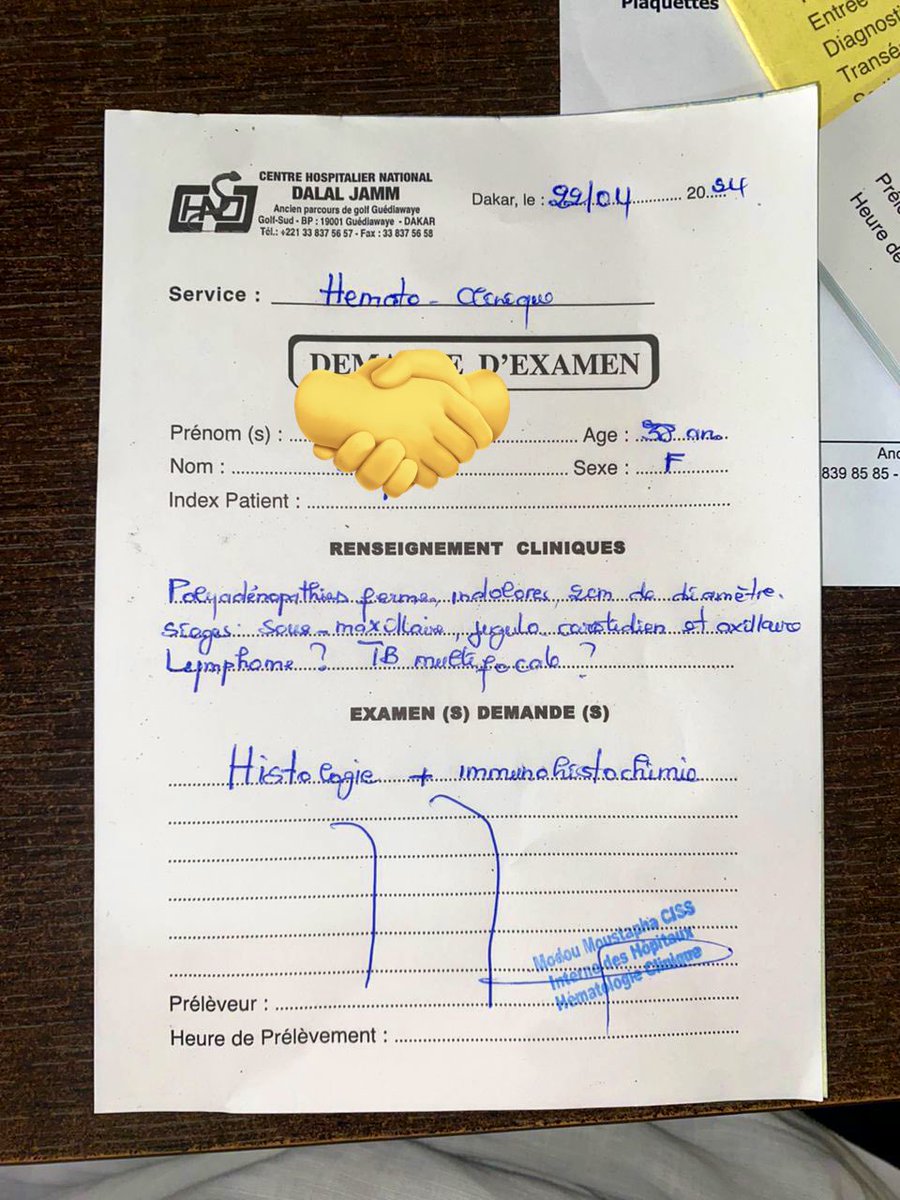 Plaquettes
Entrée
Diagnosti
Transé
CENTRE HOSPITALIER NATIONAL
DALAL JAMM
Ancien parcours de golf Guédiawaye
Golf-Sud - BP : 19001 Guédiawaye - DAKAR
Tél.: +221 33 837 56 57 - Fax : 33 837 56 58
Dakar, le : 22/04 2024
Prél
Heure de
Service : Hemato - Clinique
DEM E D'EXAMEN
Prénom (s) : Age : 38 ans
Nom : Sexe : F
Index Patient :
And
839 85 85 -
RENSEIGNEMENT CLINIQUES
Polyadénopathies fermes, indolores, 2cm de diamètre.
Sieges: Sous-maxillaire, jugulo carotidien et axillaire
Lymphome ? TB multifocale ?
EXAMEN (S) DEMANDE (S)
Histologie + immunohistochimie
Modou Moustapha CISS
Interne des Hôpitaux
Hématologie Clinique
Prélèveur :
Heure de Prélèvement :